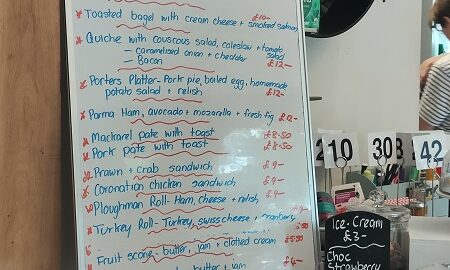 Toasted bagel with cream cheese + smoked salmon £10-
Quiche with couscous salad, coleslaw + tomato salad
- Caramelised onion + cheddar
- Bacon £12-
Porters Platter- Pork pie, boiled egg, homemade
potato salad + relish £12-
Parma Ham, avocado + mozarella + fresh fig £12-
Mackrael pate with toast £8.50
Pork pate with toast £8.50
Prawn + crab sandwich £9-
Coronation chicken sandwich £9-
Ploughman Roll- Ham, cheese + relish, £9-
Turkey Roll- Turkey, swiss cheese + cranberry
Fruit scone- butter, jam + clotted cream
butter + jam
210
30
42
Ice-Cream
£3-
Choc
Strawberry